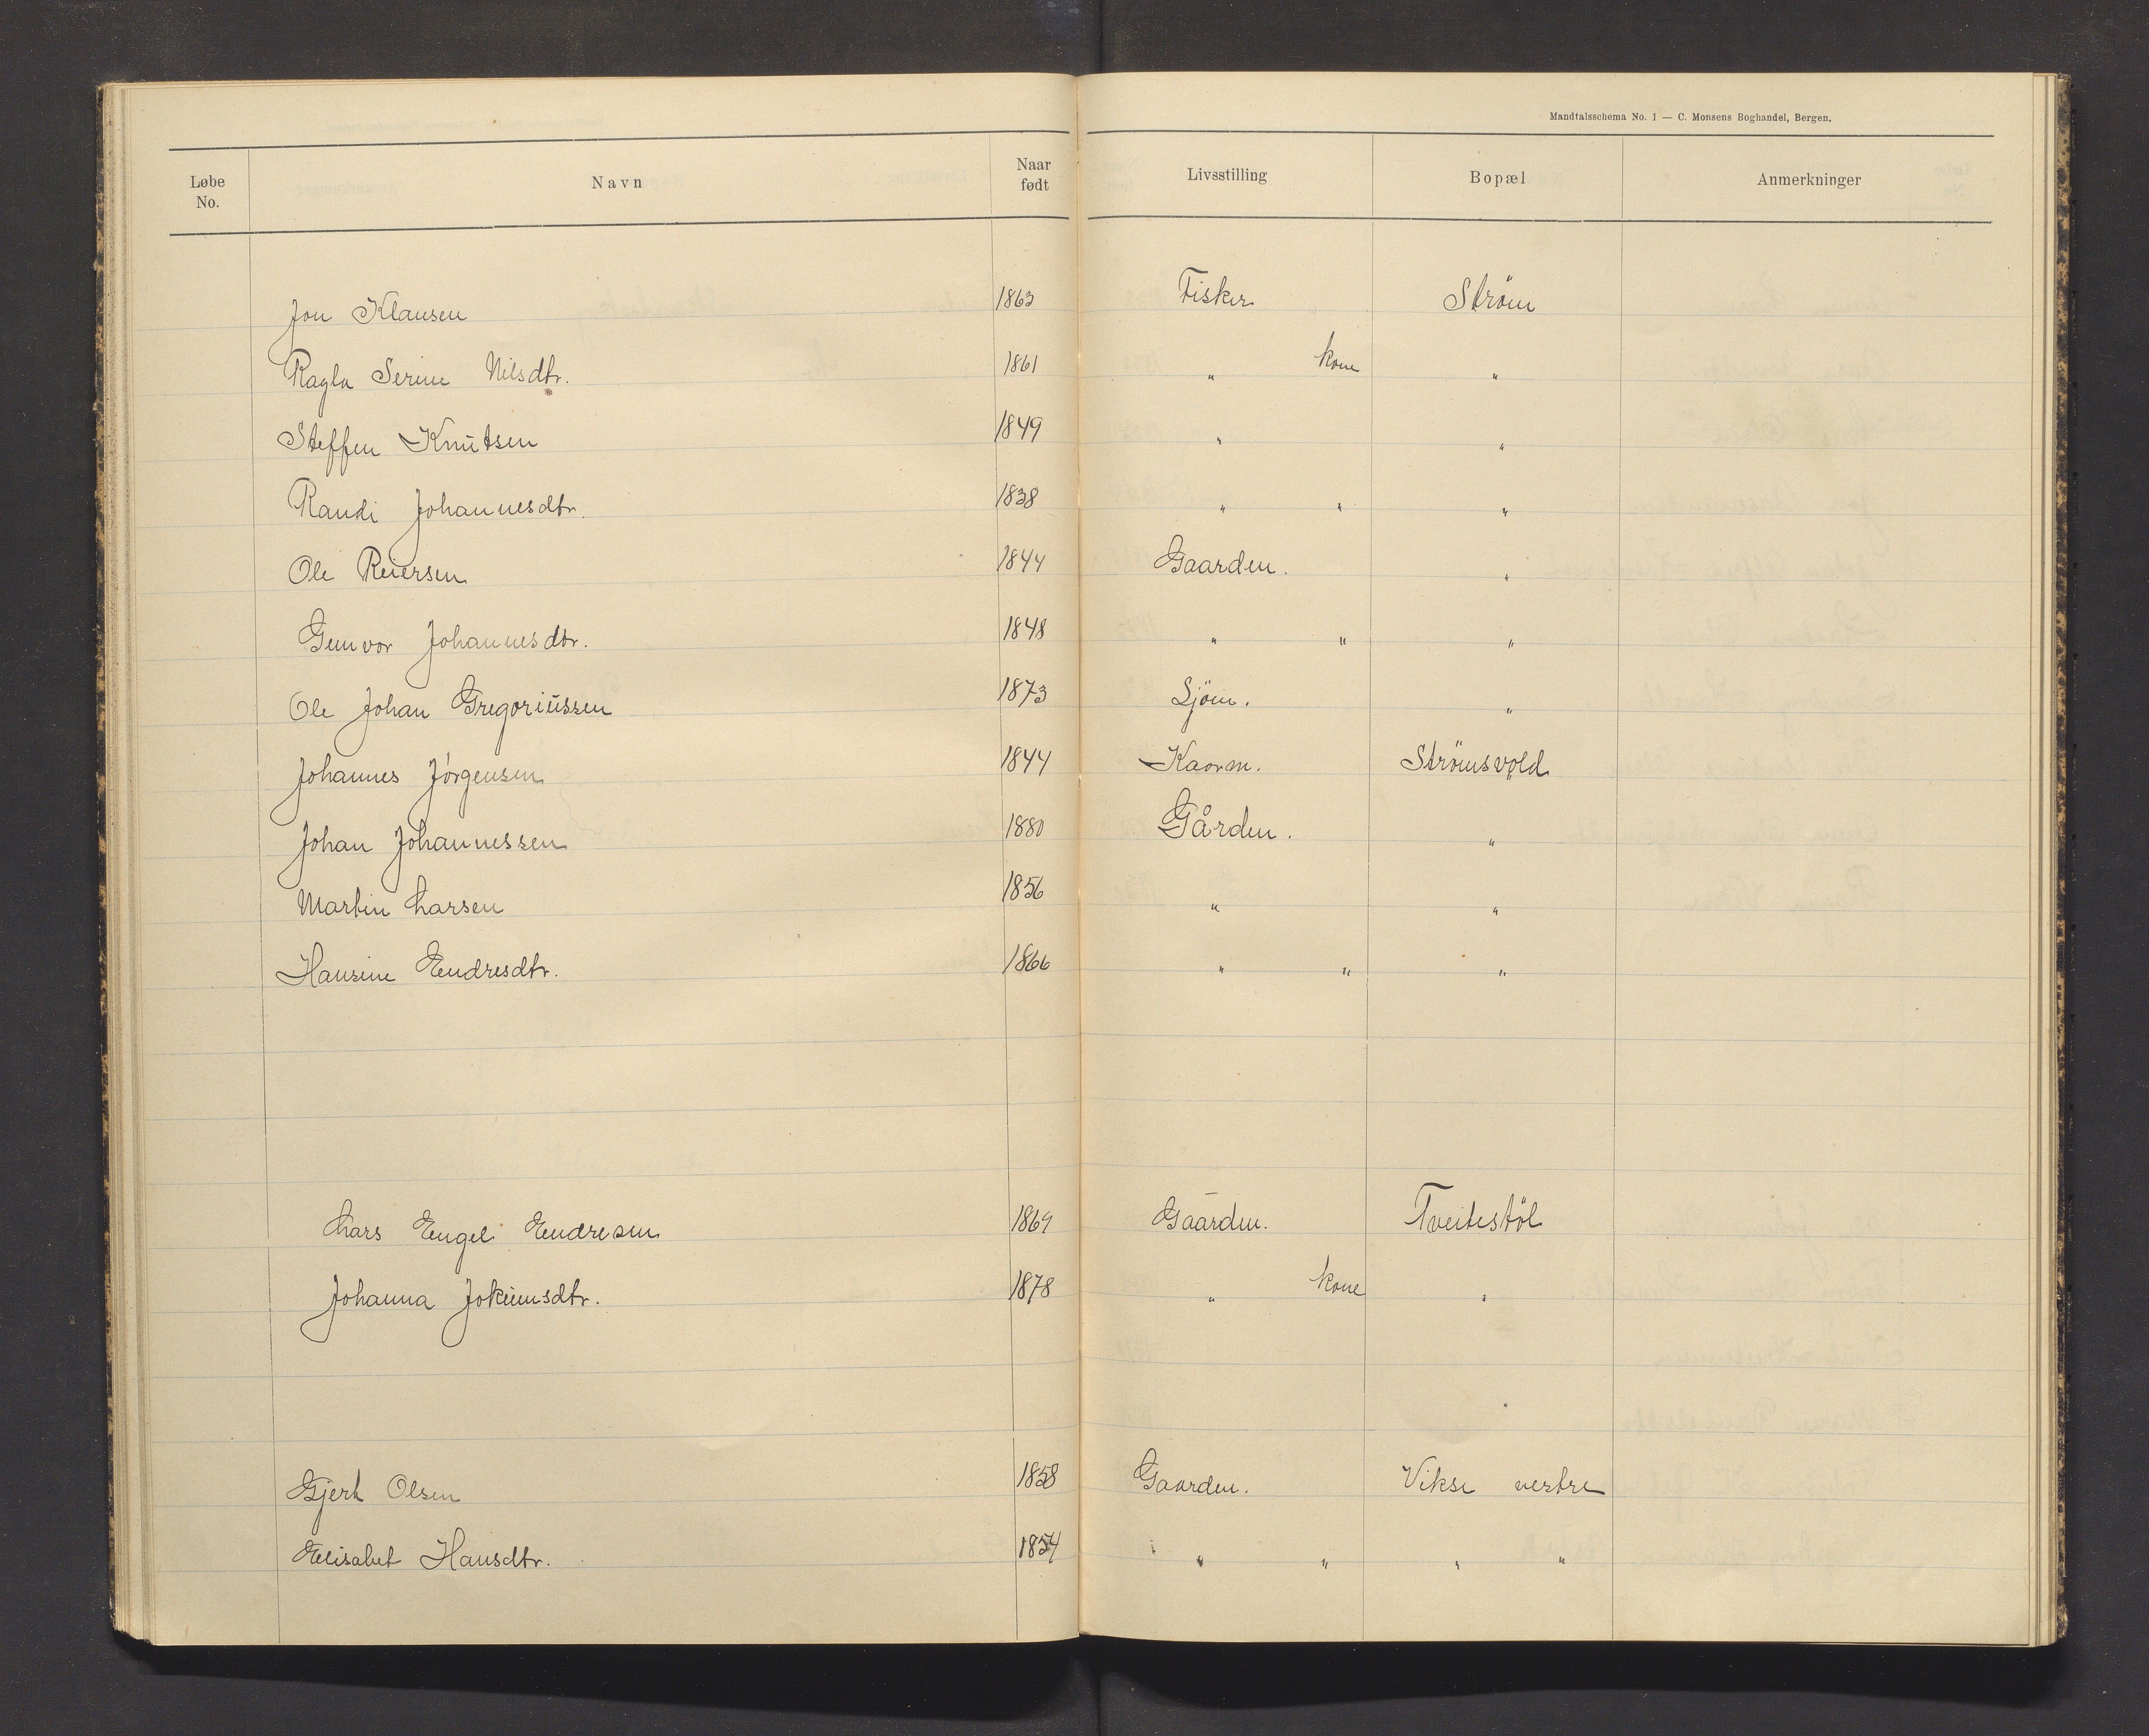 Mandtalsschema No. 1 — C. Monsens Boghandel, Bergen.
Løbe No. Navn Naar født Livsstilling Bopæl Anmerkninger
Jon Klausen 1863 Fisker Ström
Ragla Serine Nilsdtr. 1861 " kone "
Steffen Knutsen 1849 " "
Randi Johannesdtr. 1838 " " "
Ole Reiersen 1844 Gaarden. "
Gunvor Johannesdtr. 1848 " " "
Ole Johan Gregoriussen 1873 Sjöm. "
Johannes Jörgensen 1844 Kaarm. Strömsvold
Johan Johannessen 1880 Gården. "
Martin Larsen 1856 " "
Hansine Endresdtr. 1866 " " "
Lars Engel Endresen 1869 Gaarden. Tveitestöl
Johanna Jokumsdtr. 1878 " kone "
Gjert Olsen 1858 Gaarden. Vikse vestre
Elisabet Hansdtr. 1854 " " " "